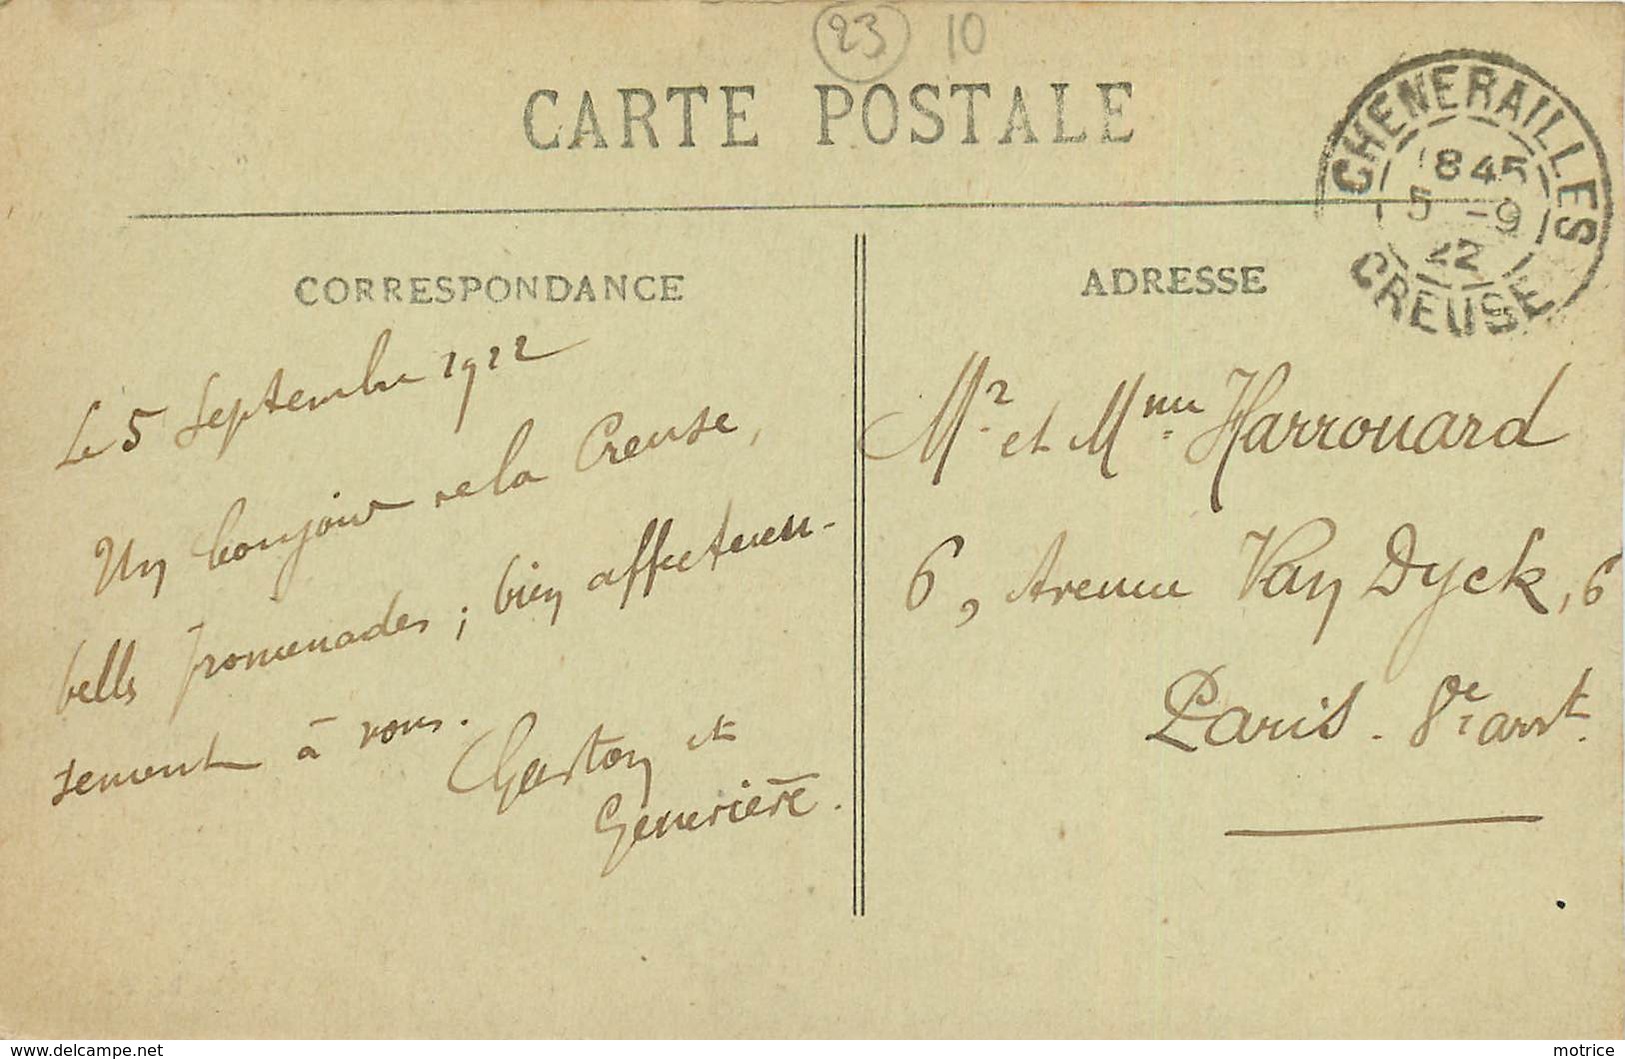 23 10
CARTE POSTALE
CHENERAILLES
845
5 -9
22
CREUSE
CORRESPONDANCE
Le 5 Septembre 1922
Un bonjour de la Creuse,
belles promenades ; bien affectueu-
sement à vous.
Gaston et
Geneviève.
ADRESSE
Mr et Mme Harrouard
6, Avenue Van Dyck, 6
Paris. 8e arrt.
www.delcampe.net
motrice